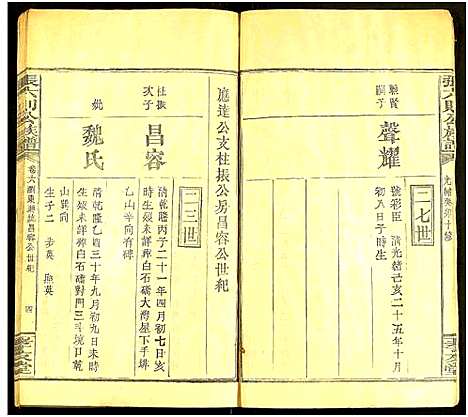 張六則公族譜
光緒癸卯十修
孝友堂
二七世
聲耀
號彩臣 清光緒己亥二十五年十月
初八日子時生
應達公支柱振公房昌容公世紀
二三世
柱振
次子
昌容
清乾隆丙子二十一年四月初七日亥
時生娘未詳葬白石磡大灣屋下手
乙山辛向有碑
娘
魏氏
清乾隆乙酉三十年九月初九日未時
生娘未詳葬白石磡對門三
巽向
生子二 步英
張六則公族譜
卷六
昌容公世紀
四
孝友堂